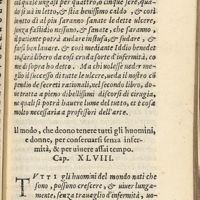 et quale ungasi per quattro, o cinque sere, qua-
si ad un letto, & stia benissimo caldo, & cosi
infra di al piu saranno sanate le dette ulcere,
senza fastidio nessuno, & sanate, che saranno,
il patiente potrà andare in stufa, & sudare, &
farsi ben lavare. & cosi mediante Iddio benedet
to sarà libero da essa corda forte d'infermità, co-
me di sopra ho detto. Ma chi volesse del me-
glio il successo di tutte le ulcere, veda il nostro ca
pendio de secreti rationali, nel secondo libro, do-
ve tratto a pieno dibellissimi discorsi di cirugia,
ne quali si potrà havere lume del tutto, et è cosa
molto necessaria a professori dell'arte.
Il modo, che deono tenere tutti gli huomini,
e donne, per conseruarsi senza infer-
mità, & per uiuere assai tempo.
Cap. XLVIII.
TVTTI gli huomini del mondo nati che
sono, possono crescere, & uiuer lungo-
mente, senza trauaglio d'infermità, uo-